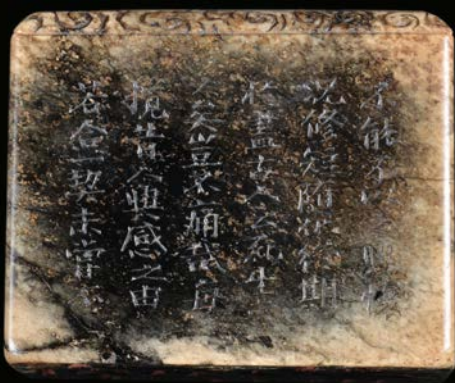 不能不以之興懷
況修短隨化終期
於盡古人云死生
大矣豈不痛哉每
攬昔人興感之由
若合一契未嘗不